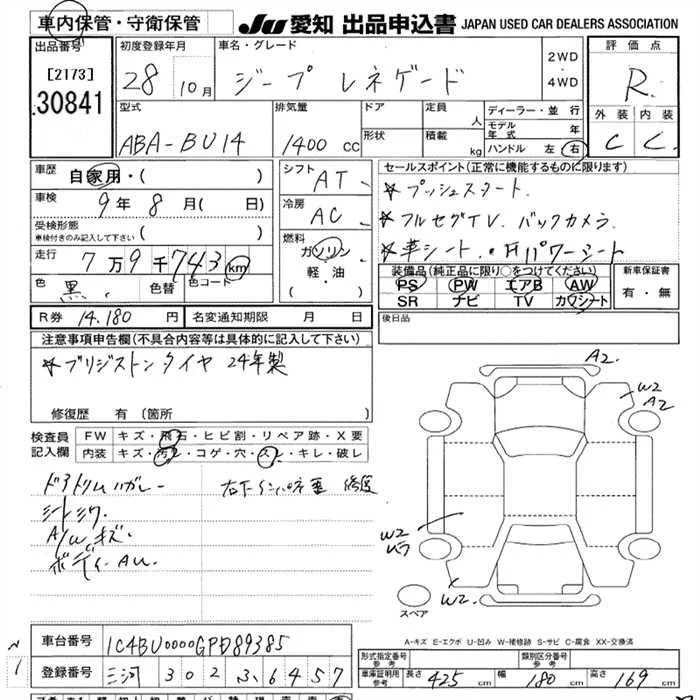 車内保管・守衛保管
JU 愛知 出品申込書 JAPAN USED CAR DEALERS ASSOCIATION
出品番号 初度登録年月 車名・グレード 評価点
[2173] 28 10月 ジープ レネゲード 2WD・4WD R
30841
型式 排気量 ドア 定員 人 ディーラー・並行 外装 内装
ABA-BU14 1400 cc 形状 積載 kg モデル年式 年 C C
ハンドル 左 右
車歴 自家用・( ) シフト AT セールスポイント(正常に機能するものに限ります)
車検 9年 8月( 日) 冷房 AC ☆プッシュスタート.
受検形態 車検付きのみ記入して下さい ( ) ☆フルセグTV. バックカメラ
走行 7万9千743 km 燃料 ガソリン・軽・油 ( ) ☆革シート.
装備品(純正品に限り○をつけてください) 新車保証書
色 黒. 色替 色コード PS PW エアB AW 有・無
SR ナビ TV カワシート
R券 14,180円 名変通知期限 月 日 後日品
注意事項申告欄(不具合内容等は具体的に記入して下さい)
☆ブリジストンタイヤ 24年製
修復歴 有(箇所 )
検査員記入欄 FW キズ・飛石・ヒビ割・リペア跡・X要
内装 キズ・汚レ・コゲ・穴・スレ・キレ・破レ
ドアトリムハガレー
シートシワ
A/W キズ.
ボディAU.
A2.
W2
A2
W2
ムラ
W2.
スペア
A-キズ E-エクボ U-凹み W-補修跡 S-サビ C-腐食 XX-交換済
車台番号 1C4BU0000GPD89385
登録番号 三河 302 ふ 6457
形式指定番号 参考 類別区分番号 参考
車庫証明用 参考 長さ 425 cm 幅 180 cm 高さ 169 cm